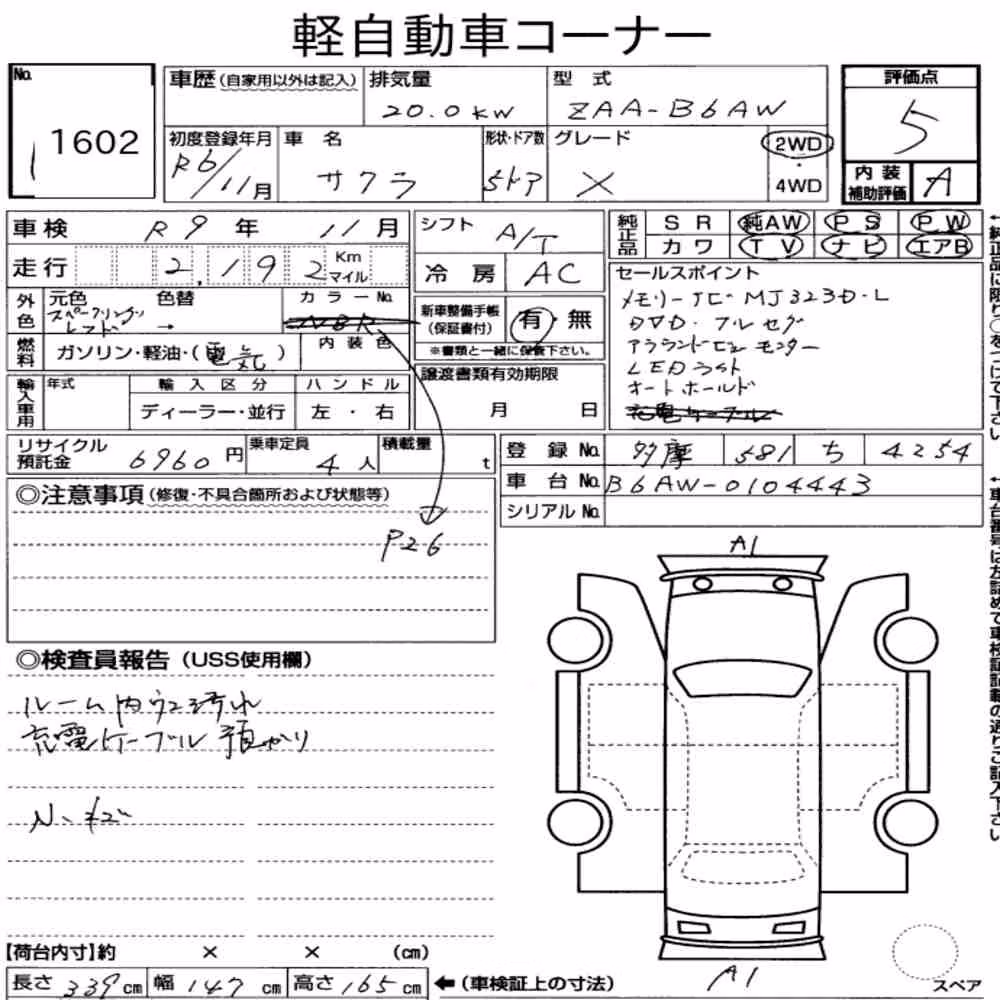 軽自動車コーナー
No. 1602
1
車歴 (自家用以外は記入)
排気量 20.0kw
型式 ZAA-B6AW
評価点 5
初度登録年月 R6/11月
車名 サクラ
形状・ドア数 5ドア
グレード X
2WD
・
4WD
内装補助評価 A
車検 R9年 11月
走行 2,192 Km マイル
シフト A/T
冷房 AC
純正品 SR 純AW PS PW
カワ TV ナビ エアB
外色 元色 スパークリングレッド 色替 →
カラーNo. NBR
内装色
燃料 ガソリン・軽油・(電気)
新車整備手帳 (保証書付) 有・無
※書類と一緒に保管下さい。
セールスポイント
メモリーナビ MJ323D-L
DVD・フルセグ
アラウンドビューモニター
LEDライト
オートホールド
充電ケーブル
輸入車用 年式 輸入区分 ハンドル
ディーラー・並行 左・右
譲渡書類有効期限
月 日
リサイクル預託金 6960円
乗車定員 4人
積載量 t
登録No. 多摩 581 ち 4254
車台No. B6AW-0104443
シリアルNo.
◎注意事項 (修復・不具合箇所および状態等)
P26
◎検査員報告 (USS使用欄)
ルーム内ウス汚れ
充電ケーブル預かり
A1
A1
スペア
【荷台内寸】約 × × (cm)
長さ 339cm 幅 147cm 高さ 165cm ←(車検証上の寸法)
←純正品に限り○をつけて下さい
←車台番号は左詰めで車検証記載の通りご記入下さい